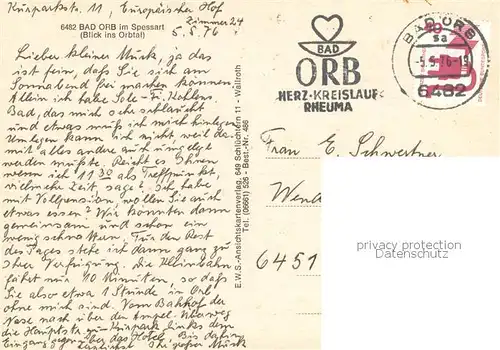 Kurparkstr. 11, Europäischer Hof
Zimmer 24
6482 BAD ORB im Spessart
(Blick ins Orbtal)
5.5.76
Lieber kleiner Muck, ja das
ist fein, daß Sie sich am
Sonnabend frei machen können.
Allein ich habe Sole-Fi. Kohlens.
Bad, das mich sehr schlaucht
und etwas muß ich mich hinlegen.
Umlegen kann ich nicht weil da-
mit alles andere auch umgelegt
werden müßte. Reicht es Ihnen
wenn ich 11 30 als Treffpunkt,
vielmehr Zeit, sage? Ich habe
mit Vollpension, wollen Sie auch
etwas essen? Wir könnten dann
gemeinsam und schon ein
wenig schnattern. Für den Rest
des Tages stehe ich dann ganz zu
Ihrer Verfügung. Die Kleinbahn
fährt nur 10 Minuten, so daß
Sie also etwa 1 Stunde in Orb
ohne mich sind. Vom Bahnhof der
Nase nach über den Ampel-Überweg
die Hauptstr. Kurpark links dem
Eingang gegenüber das Hotel. Bis dahin
herzlichst Ihr großer Muck
E.W.S.-Ansichtskartenverlag, 649 Schlüchtern 11 - Wallroth
Tel. (06661) 526 - Best.-Nr. 486
BAD
ORB
HERZ·KREISLAUF
RHEUMA
BAD ORB
sa
-5.5.76-19
6482
Frau E. Schwertner
6451
privacy protection
Datenschutz